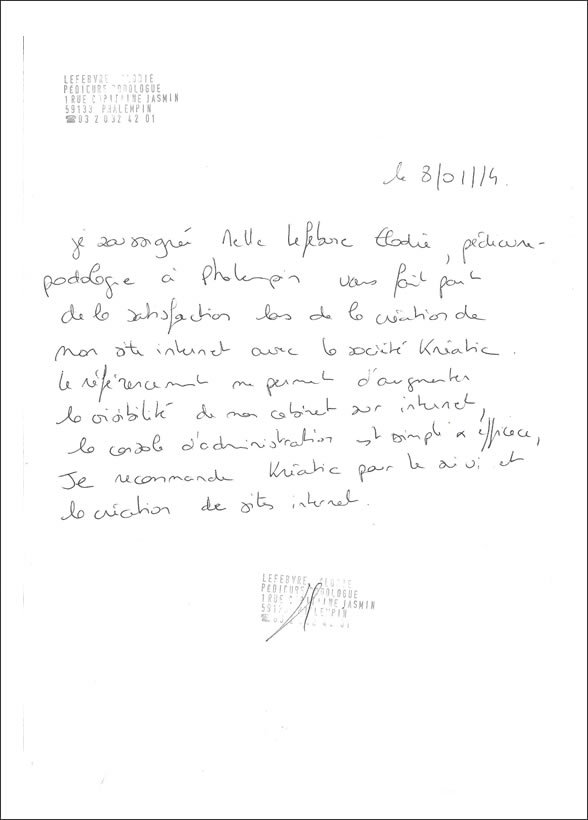 LEFEBVRE ELODIE
PEDICURE PODOLOGUE
1 RUE CAPITAINE JASMIN
59133 PHALEMPIN
☎03 20 32 42 01
le 8/01/14.
je soussigné Melle Lefebvre Elodie, pédicure-
podologue à Phalempin vous fait part
de la satisfaction lors de la création de
mon site internet avec la société Kréatic.
Le référencement me permet d'augmenter
la visibilité de mon cabinet sur internet,
la console d'administration est simple & efficace,
Je recommande Kréatic pour le suivi et
la création de sites internet.
LEFEBVRE ELODIE
PEDICURE PODOLOGUE
1 RUE CAPITAINE JASMIN
59133 PHALEMPIN